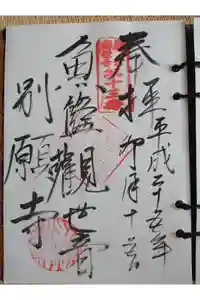 奉拝
平成二十五年
卯月十六日
魚籃觀世音
別願寺